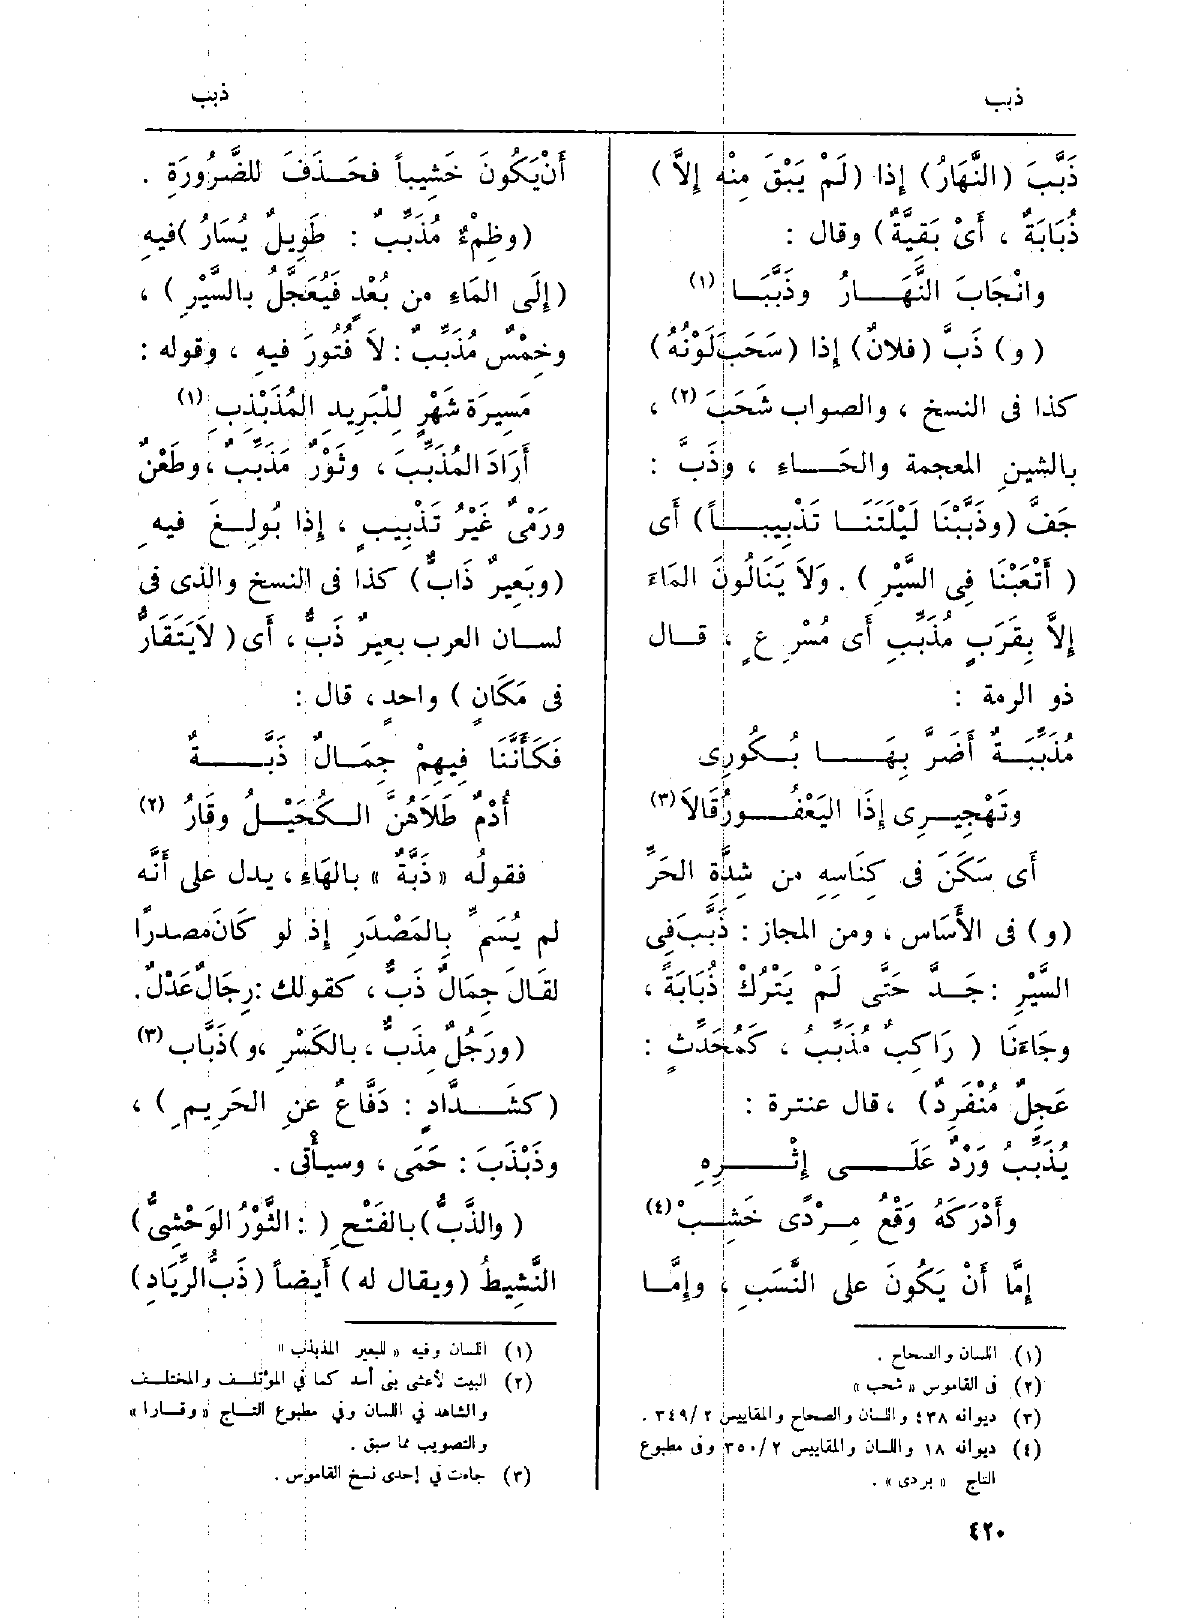 ذبب
ذبب
ذَبَّبَ (النَّهَارُ) إذا (لَمْ يَبْقَ مِنْه إِلاَّ)
ذُبَابَةٌ ، أَىْ بَقِيَّةٌ) وقال :
وانْجَابَ النَّهَــارُ وذَبَّبَــا (١)
(و) ذَبَّ (فلانٌ) إذا (سَحَبَ لَوْنُهُ)
كذا فى النسخ ، والصواب شَحَبَ (٢) ،
بالشينِ المعجمة والحَــاءِ ، وذَبَّ :
جَفَّ (وذَبَّبْنَا لَيْلَتَنَــا تَذْبِيبــاً) أَى
(أَتْعَبْنَا فِى السَّيْرِ) . وَلاَ يَنَالُونَ المَاءَ
إِلاَّ بِقَرَبٍ مُذَبِّبٍ أَى مُسْرِعٍ ، قــال
ذو الرمة :
مُذَبِّبَــةٌ أَضَرَّ بِهَــا بُــكُورِى
وتَهْجِيــرِى إِذَا اليَعْفُــورُ قَالاَ (٣)
أَى سَكَنَ فى كِنَاسِهِ من شِدَّةِ الحَرِّ
(و) فى الأَسَاس ، ومن المجاز : ذَبَّبَ فِى
السَّيْرِ : جَــدَّ حَتَّى لَمْ يَتْرُكْ ذُبَابَةً ،
وجَاءَنَا (رَاكِبٌ مُذَبِّبٌ ، كَمُحَدِّثٍ :
عَجِلٌ مُنْفَرِدٌ) ، قال عنترة :
يُذَبِّبُ وَرْدٌ عَلَــى إِثْــرِهِ
وأَدْرَكَهُ وَقْعُ مِــرْدًى خَشِــبْ (٤)
إِمَّا أَنْ يَكُونَ على النَّسَبِ ، وإِمَّــا
(١) اللسان والصحاح .
(٢) فى القاموس « شحب »
(٣) ديوانه ٤٣٨ واللسان والصحاح والمقاييس ٣٤٩/٢ .
(٤) ديوانه ١٨ واللسان والمقاييس ٣٥٠/٢ وفى مطبوع
التاج « بردى » .
أَنْ يَكُونَ خَشِيباً فحَــذَفَ للضَّرُورَةِ .
(وظِمْءٌ مُذَبِّبٌ : طَوِيلٌ يُسَارُ) فيهِ
(إِلَى المَاءِ من بُعْدٍ فَيُعَجَّلُ بالسَّيْرِ) ،
وخِمْسٌ مُذَبِّبٌ : لاَ فُتُورَ فيهِ ، وقوله :
مَسِيرَة شَهْرٍ لِلْبَرِيدِ المُذَبْذِبِ (١)
أَرَادَ المُذَبِّبَ ، وثَوْرٌ مُذَبِّبٌ ، وطَعْنٌ
ورَمْىٌ غَيْرُ تَذْبِيبٍ ، إِذا بُولِــغَ فيهِ
(وبَعِيرٌ ذَابٌّ) كذا فى النسخ والذى فى
لســان العرب بعِيرٌ ذَبٌّ ، أَى (لاَ يَتَقَارُّ
فى مَكَانٍ) واحدٍ ، قال :
فَكَأَنَّنَا فِيهِمْ جِمَــالٌ ذَبَّــةٌ
أُدْمٌ طَلاَهُنَّ الــكُحَيْــلُ وقَارُ (٢)
فقولُه « ذَبَّةٌ » بالهَاءِ ، يدل على أَنَّه
لم يُسَمَّ بِالمَصْدَرِ إِذ لو كَانَ مصدرًا
لقَالَ جِمَالٌ ذَبٌّ ، كقولك : رِجَالٌ عَدْلٌ .
(ورَجُلٌ مِذَبٌّ ، بالكَسْرِ ، و) ذَبَّاب (٣)
(كشَــدَّادٍ : دَفَّاعٌ عنِ الحَرِيمِ) ،
وذَبْذَبَ : حَمَى ، وسيأْتى .
(والذَّبُّ) بالفَتْحِ ( : الثَّوْرُ الوَحْشِىُّ)
النَّشِيطُ (ويقال له) أَيضاً (ذَبُّ الرِّيَادِ)
(١) اللسان وفيه « للبعير المذبذب »
(٢) البيت لأعشى بنى أسد كما في المؤتلــف والمختلــف
والشاهد في اللسان وفي مطبوع التــاج « وقــارا »
والتصويب مما سبق .
(٣) جاءت في إحدى نسخ القاموس .
٤٢٠